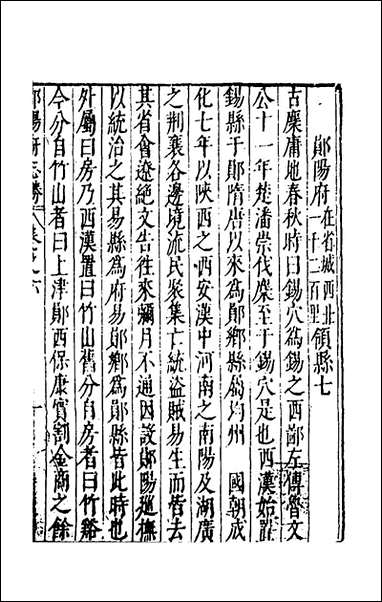 鄖陽府在省城西北一千二百里領縣七
古麇庸地春秋時曰錫穴為錫之西鄙左傳魯文
公十一年楚潘崇伐麇至于錫穴是也西漢始置
錫縣于鄖隋唐以來為鄖鄉縣蜀均州 國朝成
化七年以陝西之西安漢中河南之南陽及湖廣
之荊襄各邊境流民聚集亡統盜賊易生而皆去
其省會遼絕文告往來彌月不通因設鄖陽廵撫
以統治之其易縣為府易鄖鄉為鄖縣皆此時也
外屬曰房乃西漢置曰竹山舊分自房者曰竹谿
今分自竹山者曰上津鄖西保康實割金商之餘
鄖陽府志勝 卷之六